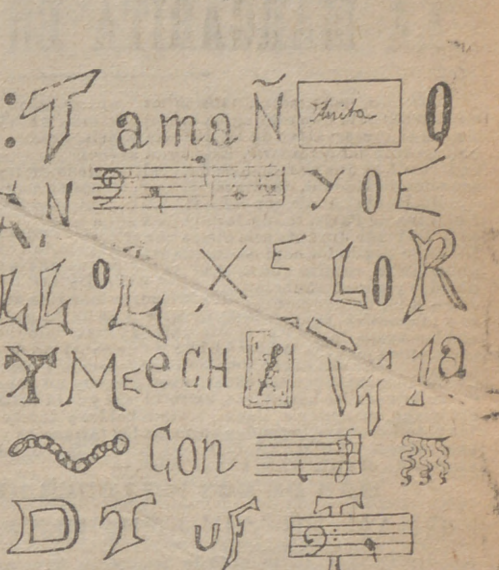 :T amaÑ Anita O
AN YOE
LLOL X E LOR
TYMEeCH VTIa
Con
DT uF T